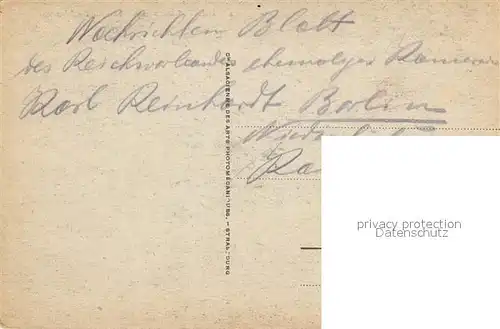 Nachrichten Blatt
des Reichsverbandes ehemaliger
Karl Reinhardt Berlin
Cie ALSACIENNE DES ARTS PHOTOMÉCANIQUES. - STRASBOURG
privacy protection
Datenschutz